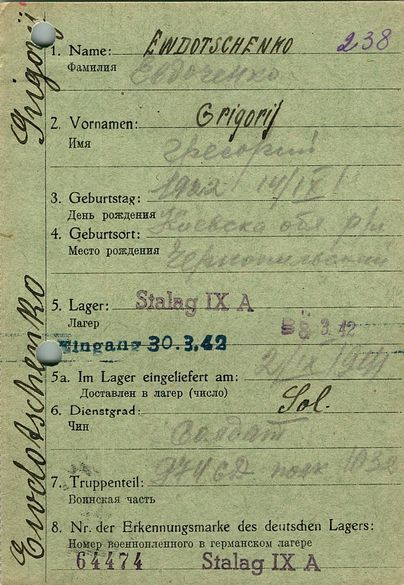 1. Name: EWDOTSCHENKO 238
Фамилия Евдоченко
2. Vornamen: Grigorij
Имя Грегорий
3. Geburtstag: 1922 14/IX
День рождения Киевска обл
4. Geburtsort:
Место рождения
5. Lager: Stalag IX A
Лагер 3.42
Eingang 30.3.42
5a. Im Lager eingeliefert am:
Доставлен в лагер (число)
6. Dienstgrad: Sol.
Чин Солдат
7. Truppenteil: полк
Воинская часть
8. Nr. der Erkennungsmarke des deutschen Lagers:
Номер военнопленного в германском лагере
64474 Stalag IX A
Ewdotschenko Grigorij